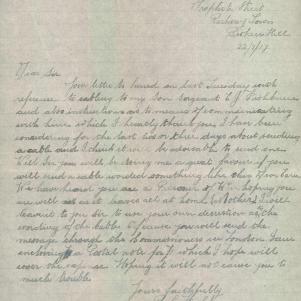 Street
Railway Town
Broken Hill
22/7/19
Dear Sir
Your letter to hand on last Tuesday with
reference to cabling to my Son Sergeant
and also instructions as to means of communicating
with him which I heartly thank you I have been
considering for the last two or three days about sending
a cable and I think it will be advisable to send one
Well Sir you will be doing me a great favour if you
will send a cable worded something like this
We have heard you are a Prisoner of War hoping you
are well as it leaves all at home (Mother) I will
leave it to you Sir to use your own discretion as the
wording of the cable Please you will send the
message through the Commissioners in London I am
enclosing a Postal note for which I hope will
cover the expense Hoping it will not cause you to
much trouble
Yours faithfully